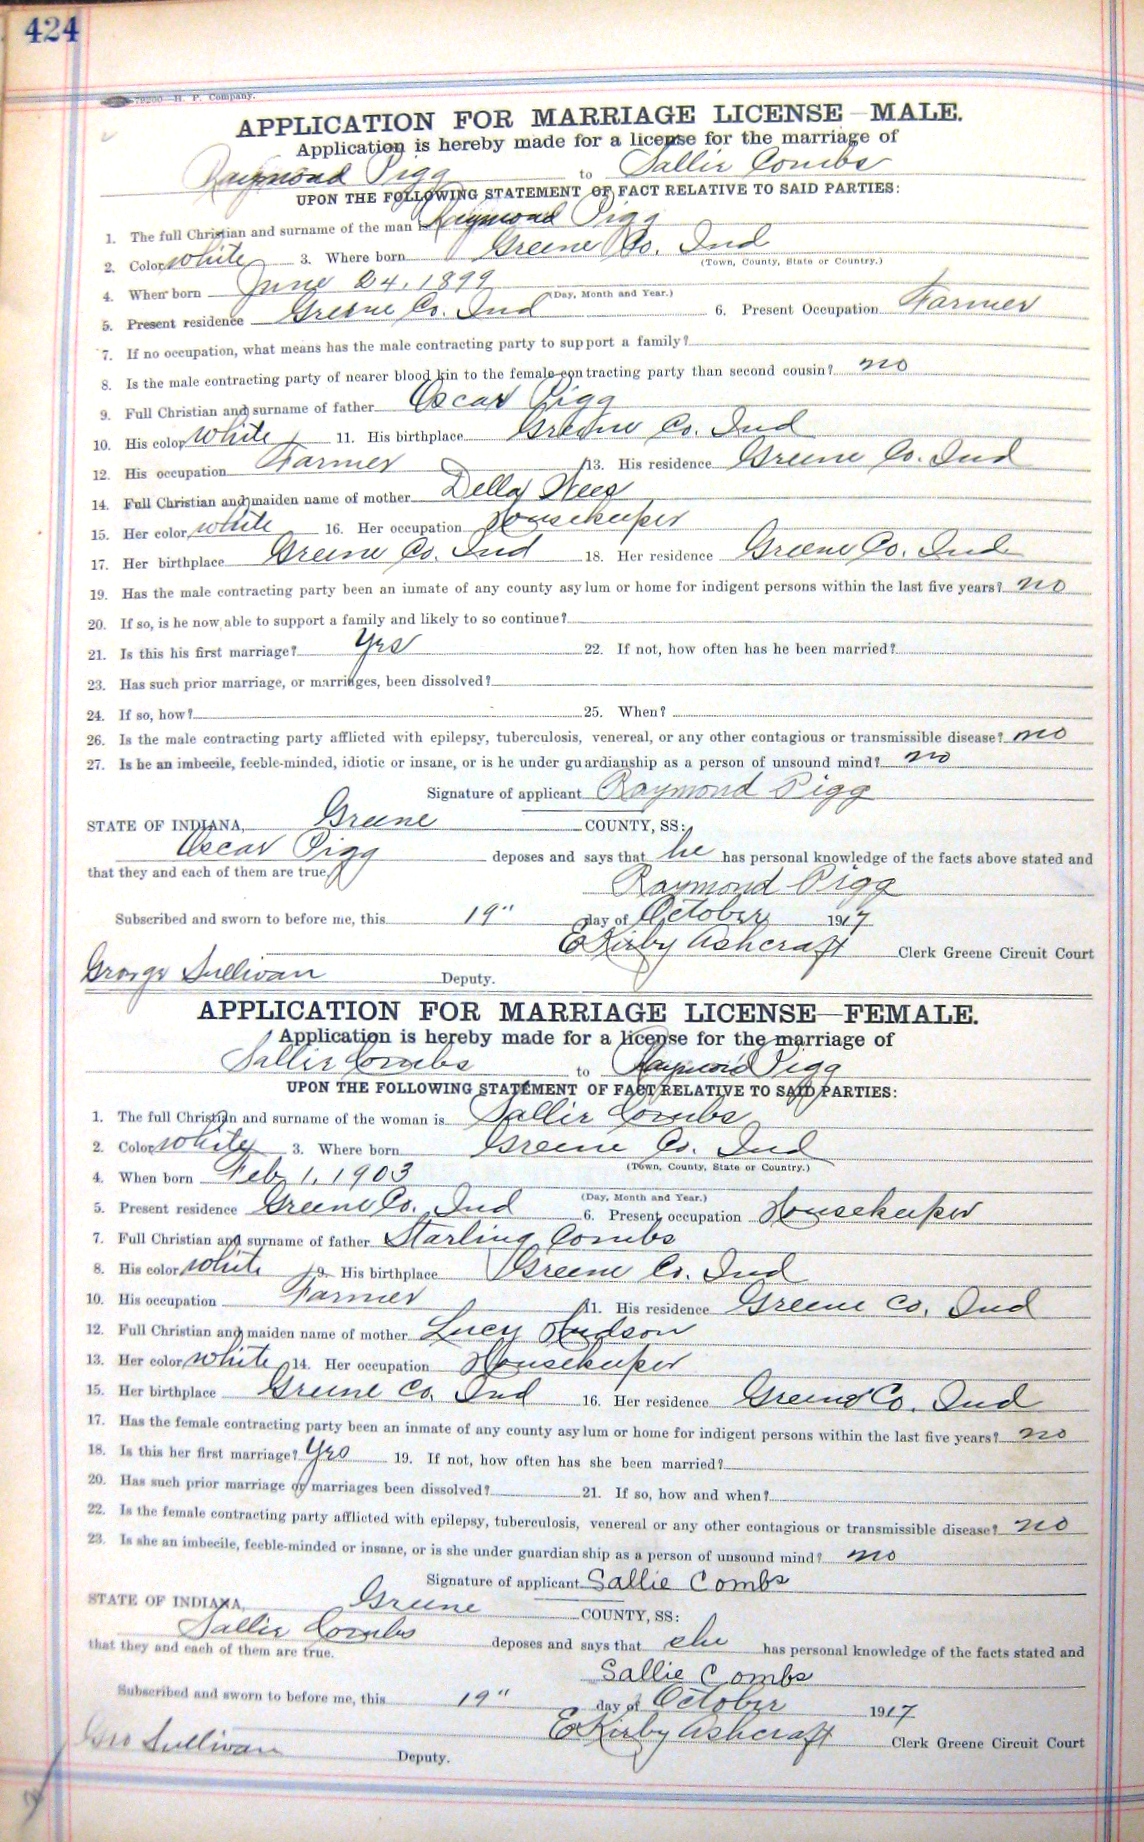 424
79200—H. P. Company.
APPLICATION FOR MARRIAGE LICENSE—MALE.
Application is hereby made for a license for the marriage of
Raymond Pigg to Sallie Combs
UPON THE FOLLOWING STATEMENT OF FACT RELATIVE TO SAID PARTIES:
1. The full Christian and surname of the man is Raymond Pigg
2. Color white 3. Where born Greene Co. Ind
(Town, County, State or Country.)
4. When born June 24, 1899
(Day, Month and Year.)
5. Present residence Greene Co. Ind 6. Present Occupation Farmer
7. If no occupation, what means has the male contracting party to support a family?
8. Is the male contracting party of nearer blood kin to the female contracting party than second cousin? no
9. Full Christian and surname of father Oscar Pigg
10. His color white 11. His birthplace Greene Co. Ind
12. His occupation Farmer 13. His residence Greene Co. Ind
14. Full Christian and maiden name of mother Della
15. Her color white 16. Her occupation Housekeeper
17. Her birthplace Greene Co. Ind 18. Her residence Greene Co. Ind
19. Has the male contracting party been an inmate of any county asylum or home for indigent persons within the last five years? no
20. If so, is he now able to support a family and likely to so continue?
21. Is this his first marriage? Yes 22. If not, how often has he been married?
23. Has such prior marriage, or marriages, been dissolved?
24. If so, how? 25. When?
26. Is the male contracting party afflicted with epilepsy, tuberculosis, venereal, or any other contagious or transmissible disease? no
27. Is he an imbecile, feeble-minded, idiotic or insane, or is he under guardianship as a person of unsound mind? no
Signature of applicant Raymond Pigg
STATE OF INDIANA, Greene COUNTY, SS:
Oscar Pigg deposes and says that he has personal knowledge of the facts above stated and
that they and each of them are true.
Raymond Pigg
Subscribed and sworn to before me, this 19" day of October 1917
E Kirby Ashcraft Clerk Greene Circuit Court
George Sullivan Deputy.
APPLICATION FOR MARRIAGE LICENSE—FEMALE.
Application is hereby made for a license for the marriage of
Sallie Combs to Raymond Pigg
UPON THE FOLLOWING STATEMENT OF FACT RELATIVE TO SAID PARTIES:
1. The full Christian and surname of the woman is Sallie Combs
2. Color white 3. Where born Greene Co. Ind
(Town, County, State or Country.)
4. When born Feb 1, 1903
(Day, Month and Year.)
5. Present residence Greene Co. Ind 6. Present occupation Housekeeper
7. Full Christian and surname of father Starling Combs
8. His color white 9. His birthplace Greene Co. Ind
10. His occupation Farmer 11. His residence Greene Co. Ind
12. Full Christian and maiden name of mother Lucy Hudson
13. Her color white 14. Her occupation Housekeeper
15. Her birthplace Greene Co. Ind 16. Her residence Greene Co. Ind
17. Has the female contracting party been an inmate of any county asylum or home for indigent persons within the last five years? no
18. Is this her first marriage? Yes 19. If not, how often has she been married?
20. Has such prior marriage or marriages been dissolved? 21. If so, how and when?
22. Is the female contracting party afflicted with epilepsy, tuberculosis, venereal or any other contagious or transmissible disease? no
23. Is she an imbecile, feeble-minded or insane, or is she under guardianship as a person of unsound mind? no
Signature of applicant Sallie Combs
STATE OF INDIANA, Greene COUNTY, SS:
Sallie Combs deposes and says that she has personal knowledge of the facts stated and
that they and each of them are true.
Sallie Combs
Subscribed and sworn to before me, this 19" day of October 1917
E Kirby Ashcraft Clerk Greene Circuit Court
Geo Sullivan Deputy.